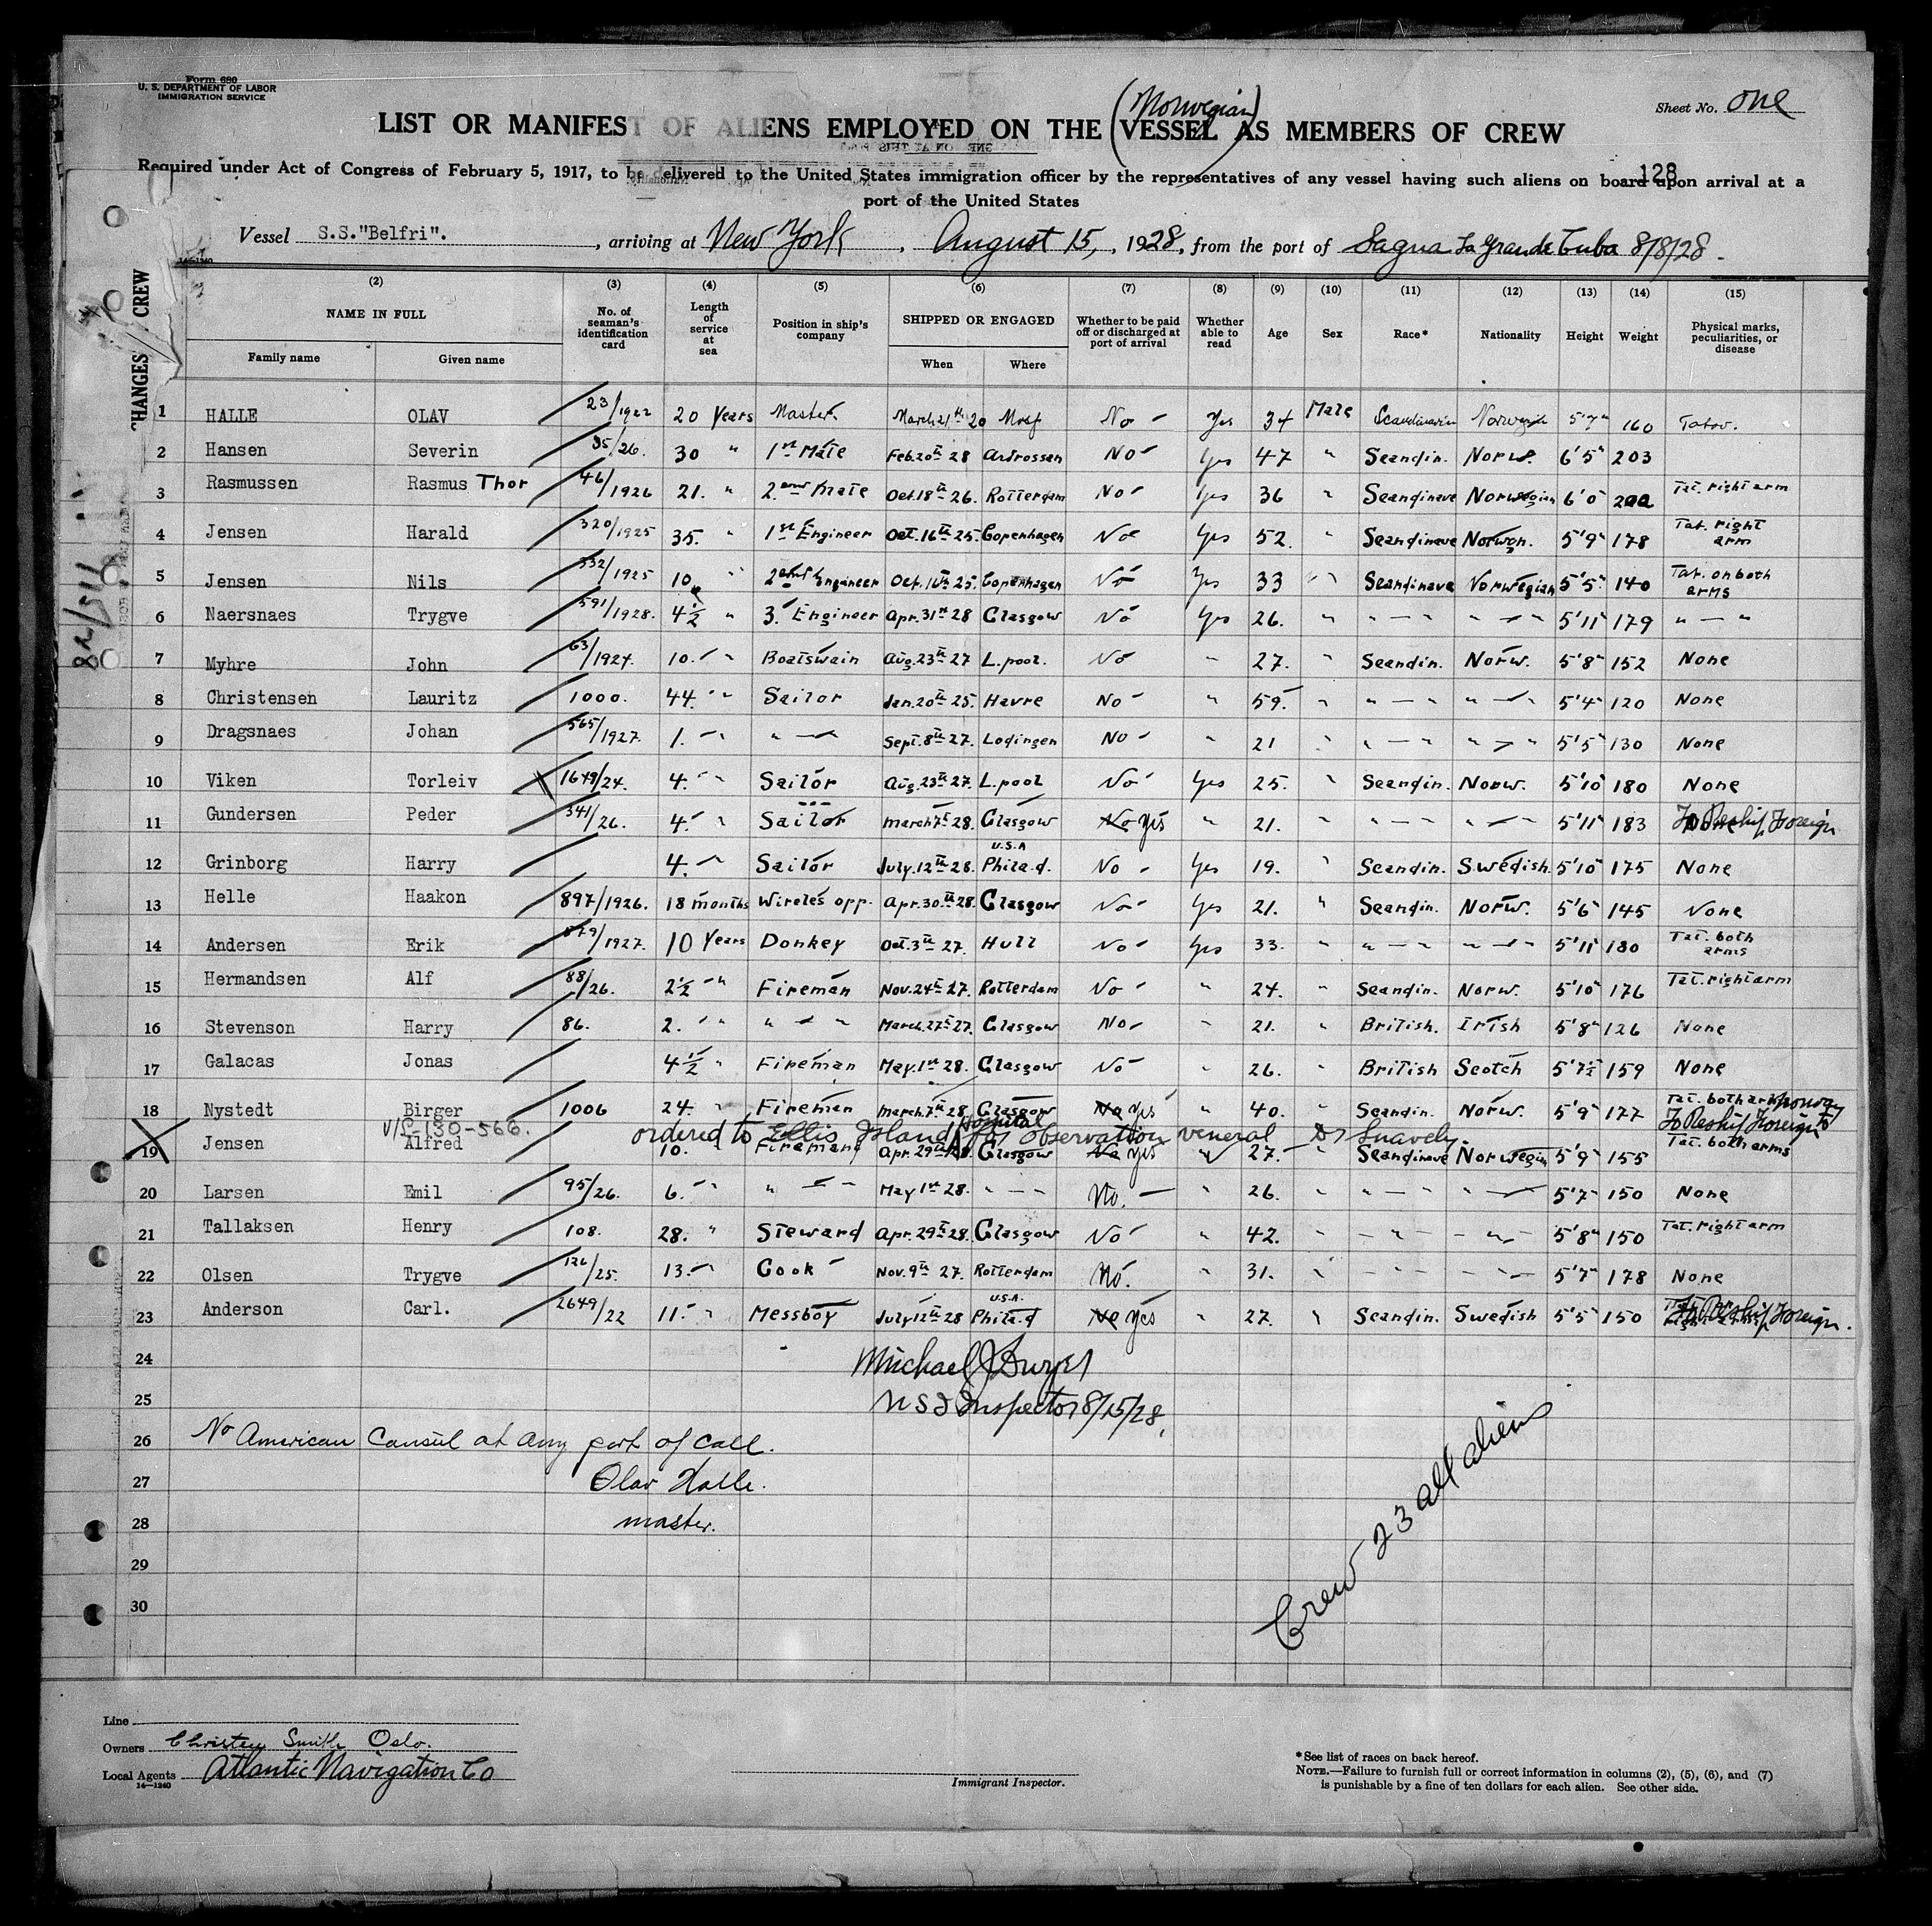 Form 680
U. S. DEPARTMENT OF LABOR
IMMIGRATION SERVICE
Sheet No. one
(Norwegian)
LIST OR MANIFEST OF ALIENS EMPLOYED ON THE VESSEL AS MEMBERS OF CREW
128
Required under Act of Congress of February 5, 1917, to be delivered to the United States immigration officer by the representatives of any vessel having such aliens on board upon arrival at a
port of the United States
Vessel S.S."Belfri". , arriving at New York , August 15, , 1928, from the port of Sagua La Grande Cuba 8/8/28.
14-1240
CHANGES CREW
(2) (3) (4) (5) (6) (7) (8) (9) (10) (11) (12) (13) (14) (15)
NAME IN FULL No. of seaman's identification card Length of service at sea Position in ship's company SHIPPED OR ENGAGED Whether to be paid off or discharged at port of arrival Whether able to read Age Sex Race* Nationality Height Weight Physical marks, peculiarities, or disease
Family name Given name When Where
1 HALLE OLAV 23/1922 20 Years Master March 21th 20 Mosf No Yes 34 Male Scandinavin Norwegin 5'7" 160 Tatov.
2 Hansen Severin 35/26. 30 " 1st Mate Feb. 20th 28 Ardrossan No Yes 47 " Scandin. Norw. 6'5" 203
3 Rasmussen Rasmus Thor 46/1926 21. " 2end Mate Oct. 18th 26. Rotterdam No Yes 36 " Scandinave Norwegian 6'0" 200 Tat. right arm
4 Jensen Harald 320/1925 35. " 1st Engineer Oct. 16th 25. Copenhagen No Yes 52. " Scandinave Norweg. 5'9" 178 Tat. right arm
5 Jensen Nils 332/1925 10 " 2end Engineer Oct. 16th 25. Copenhagen No Yes 33 " Scandinave Norwegian 5'5" 140 Tat. on both arms
6 Naersnaes Trygve 591/1928. 4½ " 3. Engineer Apr. 31st 28 Glasgow No Yes 26. " " — " " — " 5'11" 179 " — "
7 Myhre John 63/1924. 10. " Boatswain Aug. 23th 27 L.pool. No " 27. " Scandin. Norw. 5'8" 152 None
8 Christensen Lauritz 1000. 44. " Sailor Jan. 20th 25. Havre No " 59. " " — " " — " 5'4" 120 None
9 Dragsnaes Johan 565/1927. 1. " " — " Sept. 8th 27. Lodingen No " 21 " " — " " — " 5'5" 130 None
10 Viken Torleiv 1649/24. 4. " Sailor Aug. 23th 27. L.pool No Yes 25. " Scandin. Norw. 5'10" 180 None
11 Gundersen Peder 341/26. 4. " Sailor March 7th 28. Glasgow No Yes " 21. " " — " " — " 5'11" 183 None To Reship Foreign
12 Grinborg Harry 4. " Sailor July. 12th 28. U.S.A Philad. No Yes 19. " Scandin. Swedish. 5'10" 175 None
13 Helle Haakon 897/1926. 18 months Wireles opp. Apr. 30.th 28. Glasgow No Yes 21. " Scandin. Norw. 5'6" 145 None
14 Andersen Erik 879/1927. 10 Years Donkey Oct. 3th 27. Hull No Yes 33. " " — " " — " 5'11" 180 Tat. both arms
15 Hermandsen Alf 88/26. 2½ " Fireman Nov. 24th 27. Rotterdam No " 24. " Scandin. Norw. 5'10" 176 Tat. right arm
16 Stevenson Harry 86. 2. " " — " March. 27th 27. Glasgow No " 21. " British. Irish 5'8" 126 None
17 Galacas Jonas 4½ " Fireman May. 1st 28. Glasgow No " 26. " British Scotch 5'7½ 159 None
18 Nystedt Birger 1006 24. " Fireman March. 7th 28 Glasgow No Yes " 40. " Scandin. Norw. 5'9" 177 Tat. both arms To Reship Foreign
V/S-130-566. ordered to Ellis Island Hospital for observation veneral Dr Snavely.
19 Jensen Alfred 10. " Fireman Apr. 29th 28 Glasgow No Yes " 27. " Scandinave Norwegin 5'9" 155 Tat. both arms
20 Larsen Emil 95/26. 6. " " — " May 1st 28. " — " No. " 26. " " — " " — " 5'7" 150 None
21 Tallaksen Henry 108. 28. " Steward Apr. 29th 28. Glasgow No " 42. " — " — — " — 5'8" 150 Tat. right arm
22 Olsen Trygve 126/25. 13. " Cook Nov. 9th 27. Rotterdam No. " 31. " " — " " — " 5'7" 178 None
23 Anderson Carl. 2649/22 11. " Messboy July 12th 28 U.S.A. Philad No Yes " 27. " Scandin. Swedish 5'5" 150 To Reship Foreign.
24 Michael J Dwyer
25 U S I Inspector 8/15/28.
26 No American Consul at any port of call.
27 Olav Halle.
28 master.
29
30
Crew 23 all aliens
Line
Owners Christen Smith Oslo.
Local Agents Atlantic Navigation Co
14-1240
Immigrant Inspector.
*See list of races on back hereof.
NOTE.—Failure to furnish full or correct information in columns (2), (5), (6), and (7)
is punishable by a fine of ten dollars for each alien. See other side.